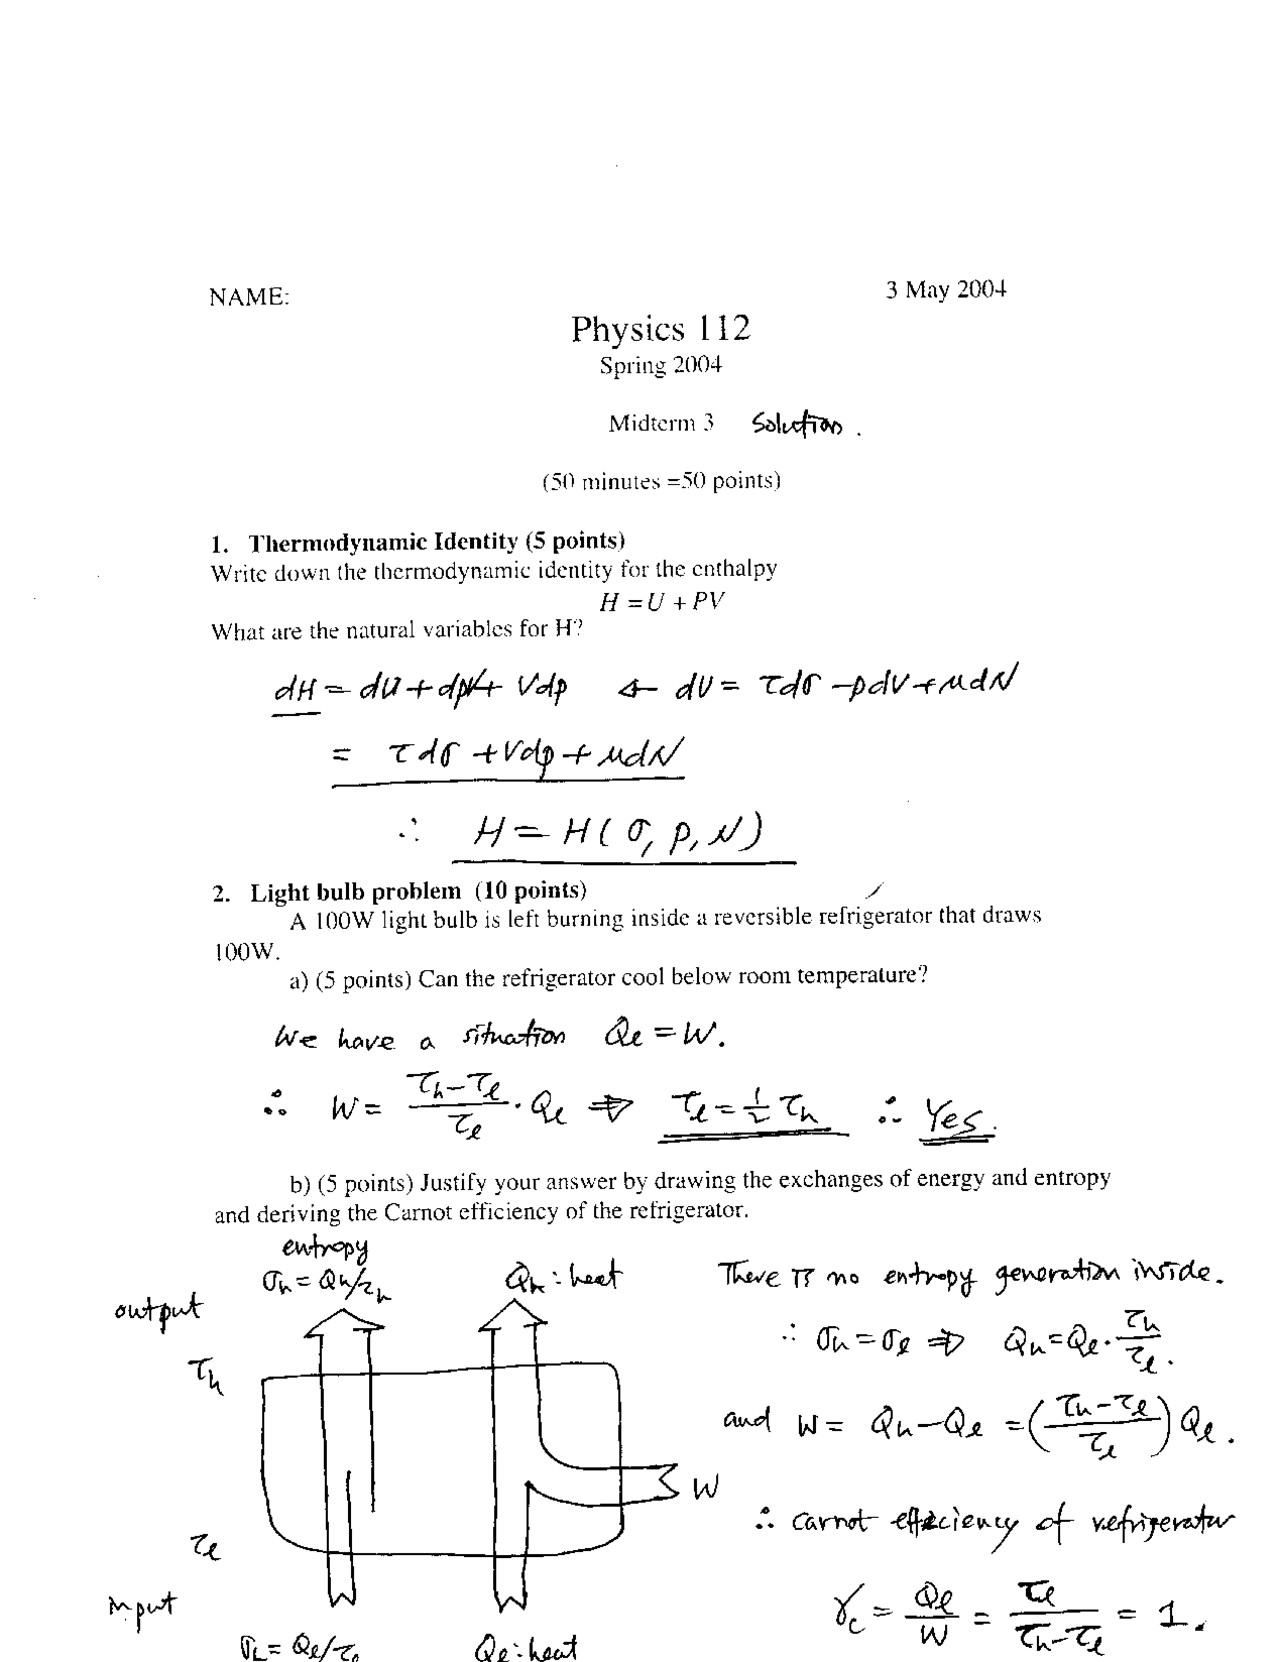 NAME:
3 May 2004
Physics 112
Spring 2004
Midterm 3 Solution.
(50 minutes =50 points)
1. Thermodynamic Identity (5 points)
Write down the thermodynamic identity for the enthalpy
H = U + PV
What are the natural variables for H?
dH = dU + dpV + Vdp ← dU = τdσ - pdV + μdN
= τdσ + Vdp + μdN
∴ H = H(σ, p, N)
2. Light bulb problem (10 points)
A 100W light bulb is left burning inside a reversible refrigerator that draws
100W.
a) (5 points) Can the refrigerator cool below room temperature?
We have a situation Qℓ = W.
∴ W = (τh - τℓ)/τℓ · Qℓ ⇒ τℓ = 1/2 τh ∴ Yes.
b) (5 points) Justify your answer by drawing the exchanges of energy and entropy
and deriving the Carnot efficiency of the refrigerator.
entropy
σh = Qh/τh
Qh : heat
output
τh
W
τℓ
input
σL = Qℓ/τℓ
Qℓ : heat
There is no entropy generation inside.
∴ σh = σℓ ⇒ Qh = Qℓ · τh/τℓ.
and W = Qh - Qℓ = ((τh - τℓ)/τℓ) Qℓ.
∴ Carnot efficiency of refrigerator
γc = Qℓ/W = τℓ/(τh - τℓ) = 1.